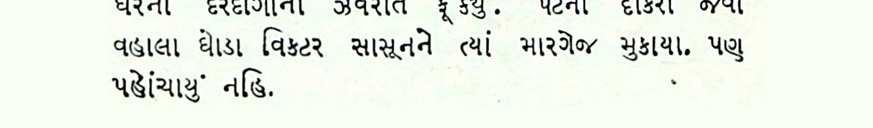 ઘરના દરદાગીના ઝવેરાત ફૂંક્યું. પેટના દીકરા જેવા
વહાલા ઘોડા વિક્ટર સાસૂનને ત્યાં મારગેજ મુકાયા. પણ
પહોંચાયું નહિ.